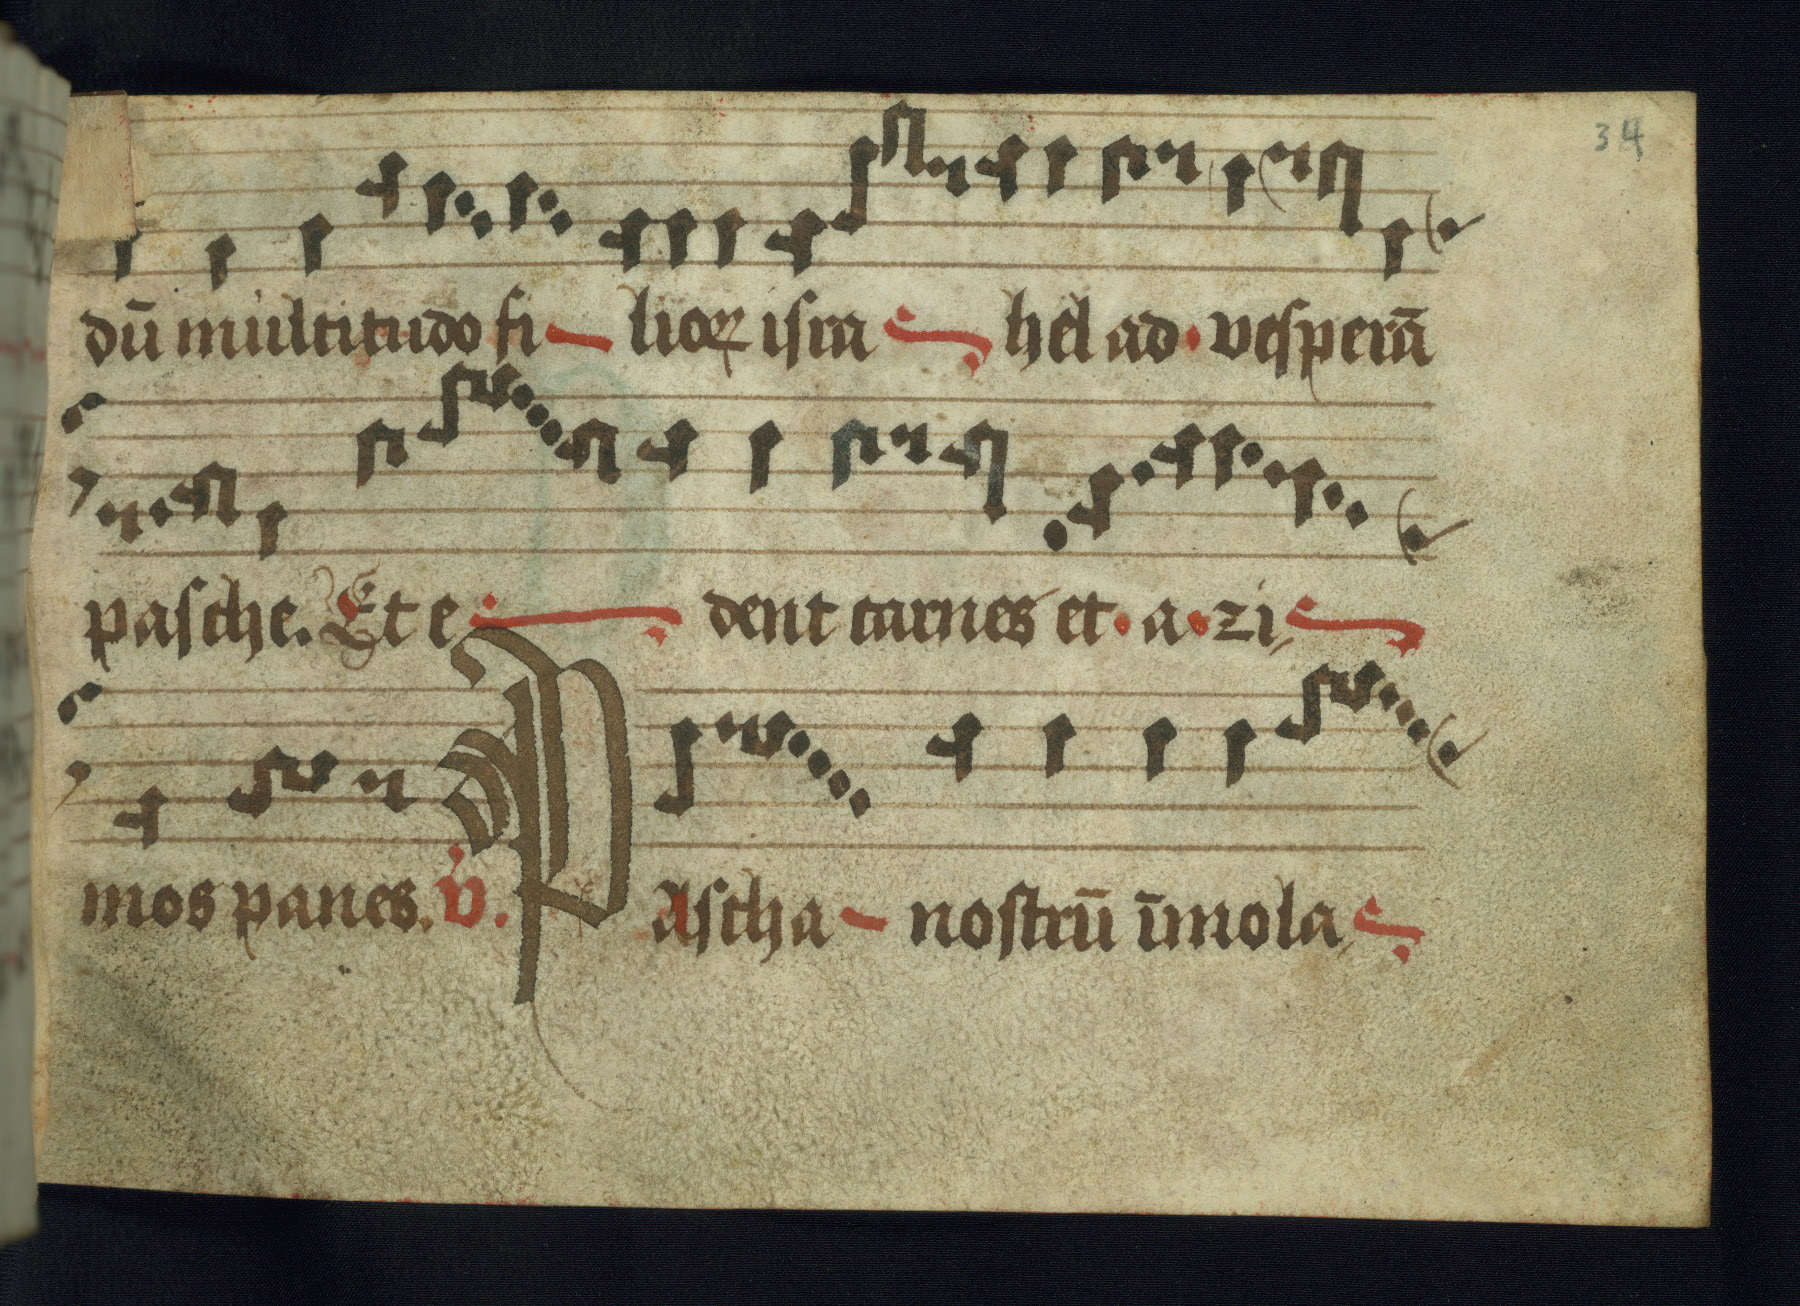 34
dū multitudo fi lioꝝ isra hel ad vesperā
pasche. Et e dent carnes et a zi
mos panes. V̓. 
PAscha nostrū īmola